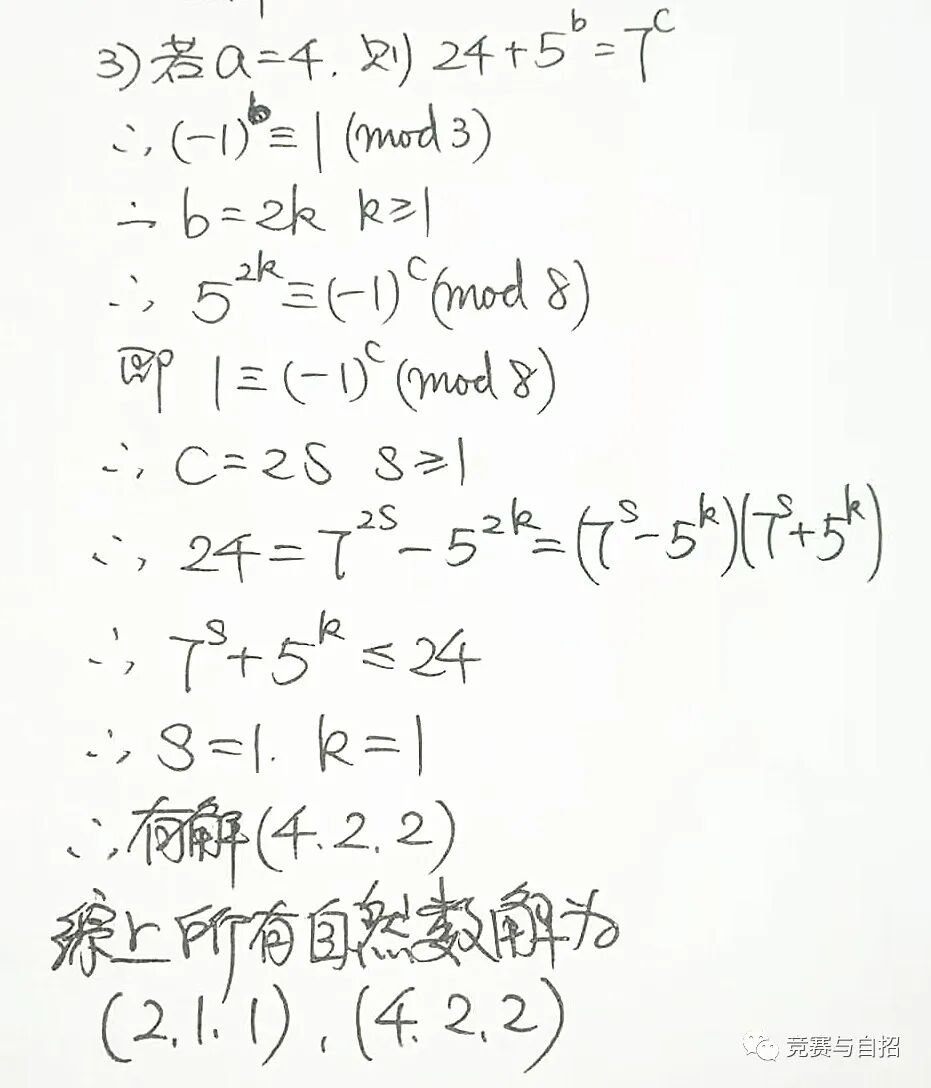 3)若a=4.则 24+5^b=7^c
∴(-1)^b≡1(mod3)
∴b=2k k≥1
∴5^{2k}≡(-1)^c(mod 8)
即 1≡(-1)^c(mod 8)
∴C=2S S≥1
∴24=7^{2S}-5^{2k}=(7^S-5^k)(7^S+5^k)
∴7^S+5^k≤24
∴S=1. k=1
∴有解(4.2.2)
综上所有自然数解为
(2.1.1),(4.2.2)
竞赛与自招